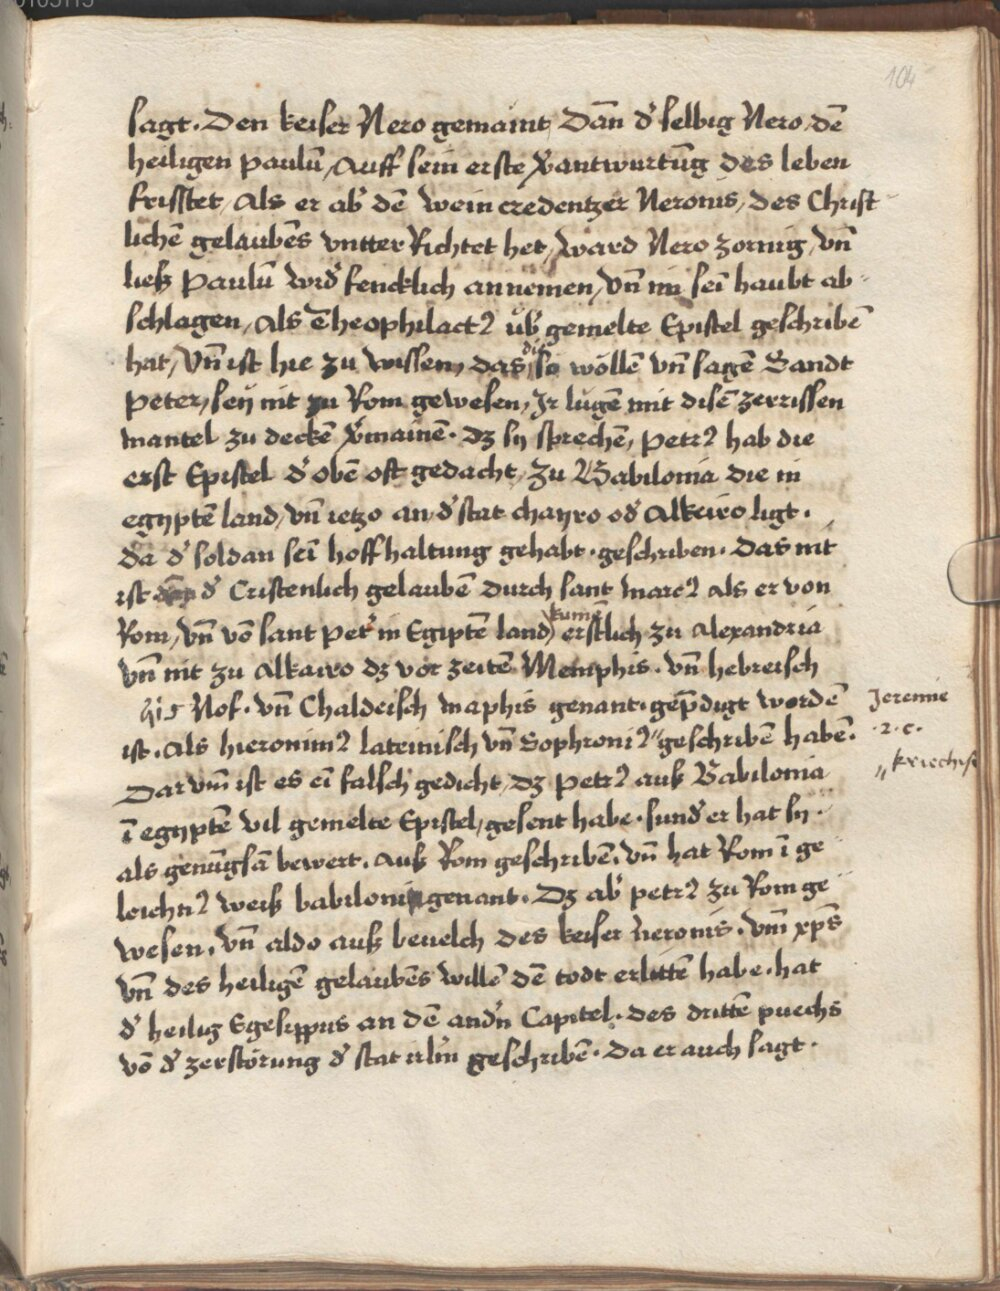 104
sagt. Den keiser Nero gemaint, Dañ dʼ selbig Nero, dē
heiligen paulū, Auff sein erste vʼantwurtūg des leben
fristtet, Als er abʼ dē wein credentzer Neronis, des Christ
lichē gelaubēs vntter Richtet het, ward Nero zornig, vn̄
ließ Paulū widʼ fencklich annemen, vn̄ im sei̅ haubt ab-
schlagen, Als Theophilactꝰ übʼ gemelte Epistel geschribē
hat, Vn̄ ist hie zu wissen, das die so wöllē vn̄ sagē Sandt
Peter, seӱ nit zu Rom gewesen, Jr lugē mit disē zerrissen
mantel zu deckē vʼmainē. dz sy sprechē, Petrꝰ hab die
erst Epistel dʼ obē oft gedacht, zu Babilonia die in
egyptē land, vn̄ ietzo an dʼ stat chayro odʼ Alkeiro ligt.
da dʼ soldan sei̅ hoffhaltung gehabt. geschriben. Das nit
ist dʼ Cristenlich gelaubē durch sant marcꝰ als er von
Rom, vn̄ vō sant Petʼ in Egiptē land kumē erstlich zu Alexandria
vn̄ nit zu Alkairo dz vor zeitē Memphis. vn̄ hebreisch
Nof. vn̄ Chaldeisch maphis genant. gep̄digt wordē
Jeremie
.2.c.
ist. Als hieronimꝰ lateinisch vn̄ Sophroniꝰ " geschribē habē.
" kriechisch
Dar vm̄ ist es ei̅ falsch gedicht, dz petrꝰ auß Babilonia
i̅ egyptē vil gemelte Epistel, gesent habe. sundʼ er hat sy.
als genūgsā bewert. Auß Rom geschribē. vn̄ hat Rom i̅ ge
leichnꝰ weiß babiloni genant. Dz abʼ petrꝰ zu Rom ge
wesen. vn̄ aldo auß beuelch des keiser neronis. vm̄ xp̄s
vn̄ des heiligē gelaubēs willē dē todt erlittē habe. hat
dʼ heilig Egesippus an dē andʼn Capitel. des drittē puechs
vō dʼ zerstörung dʼ stat irl̄m geschribē. Da er auch sagt.